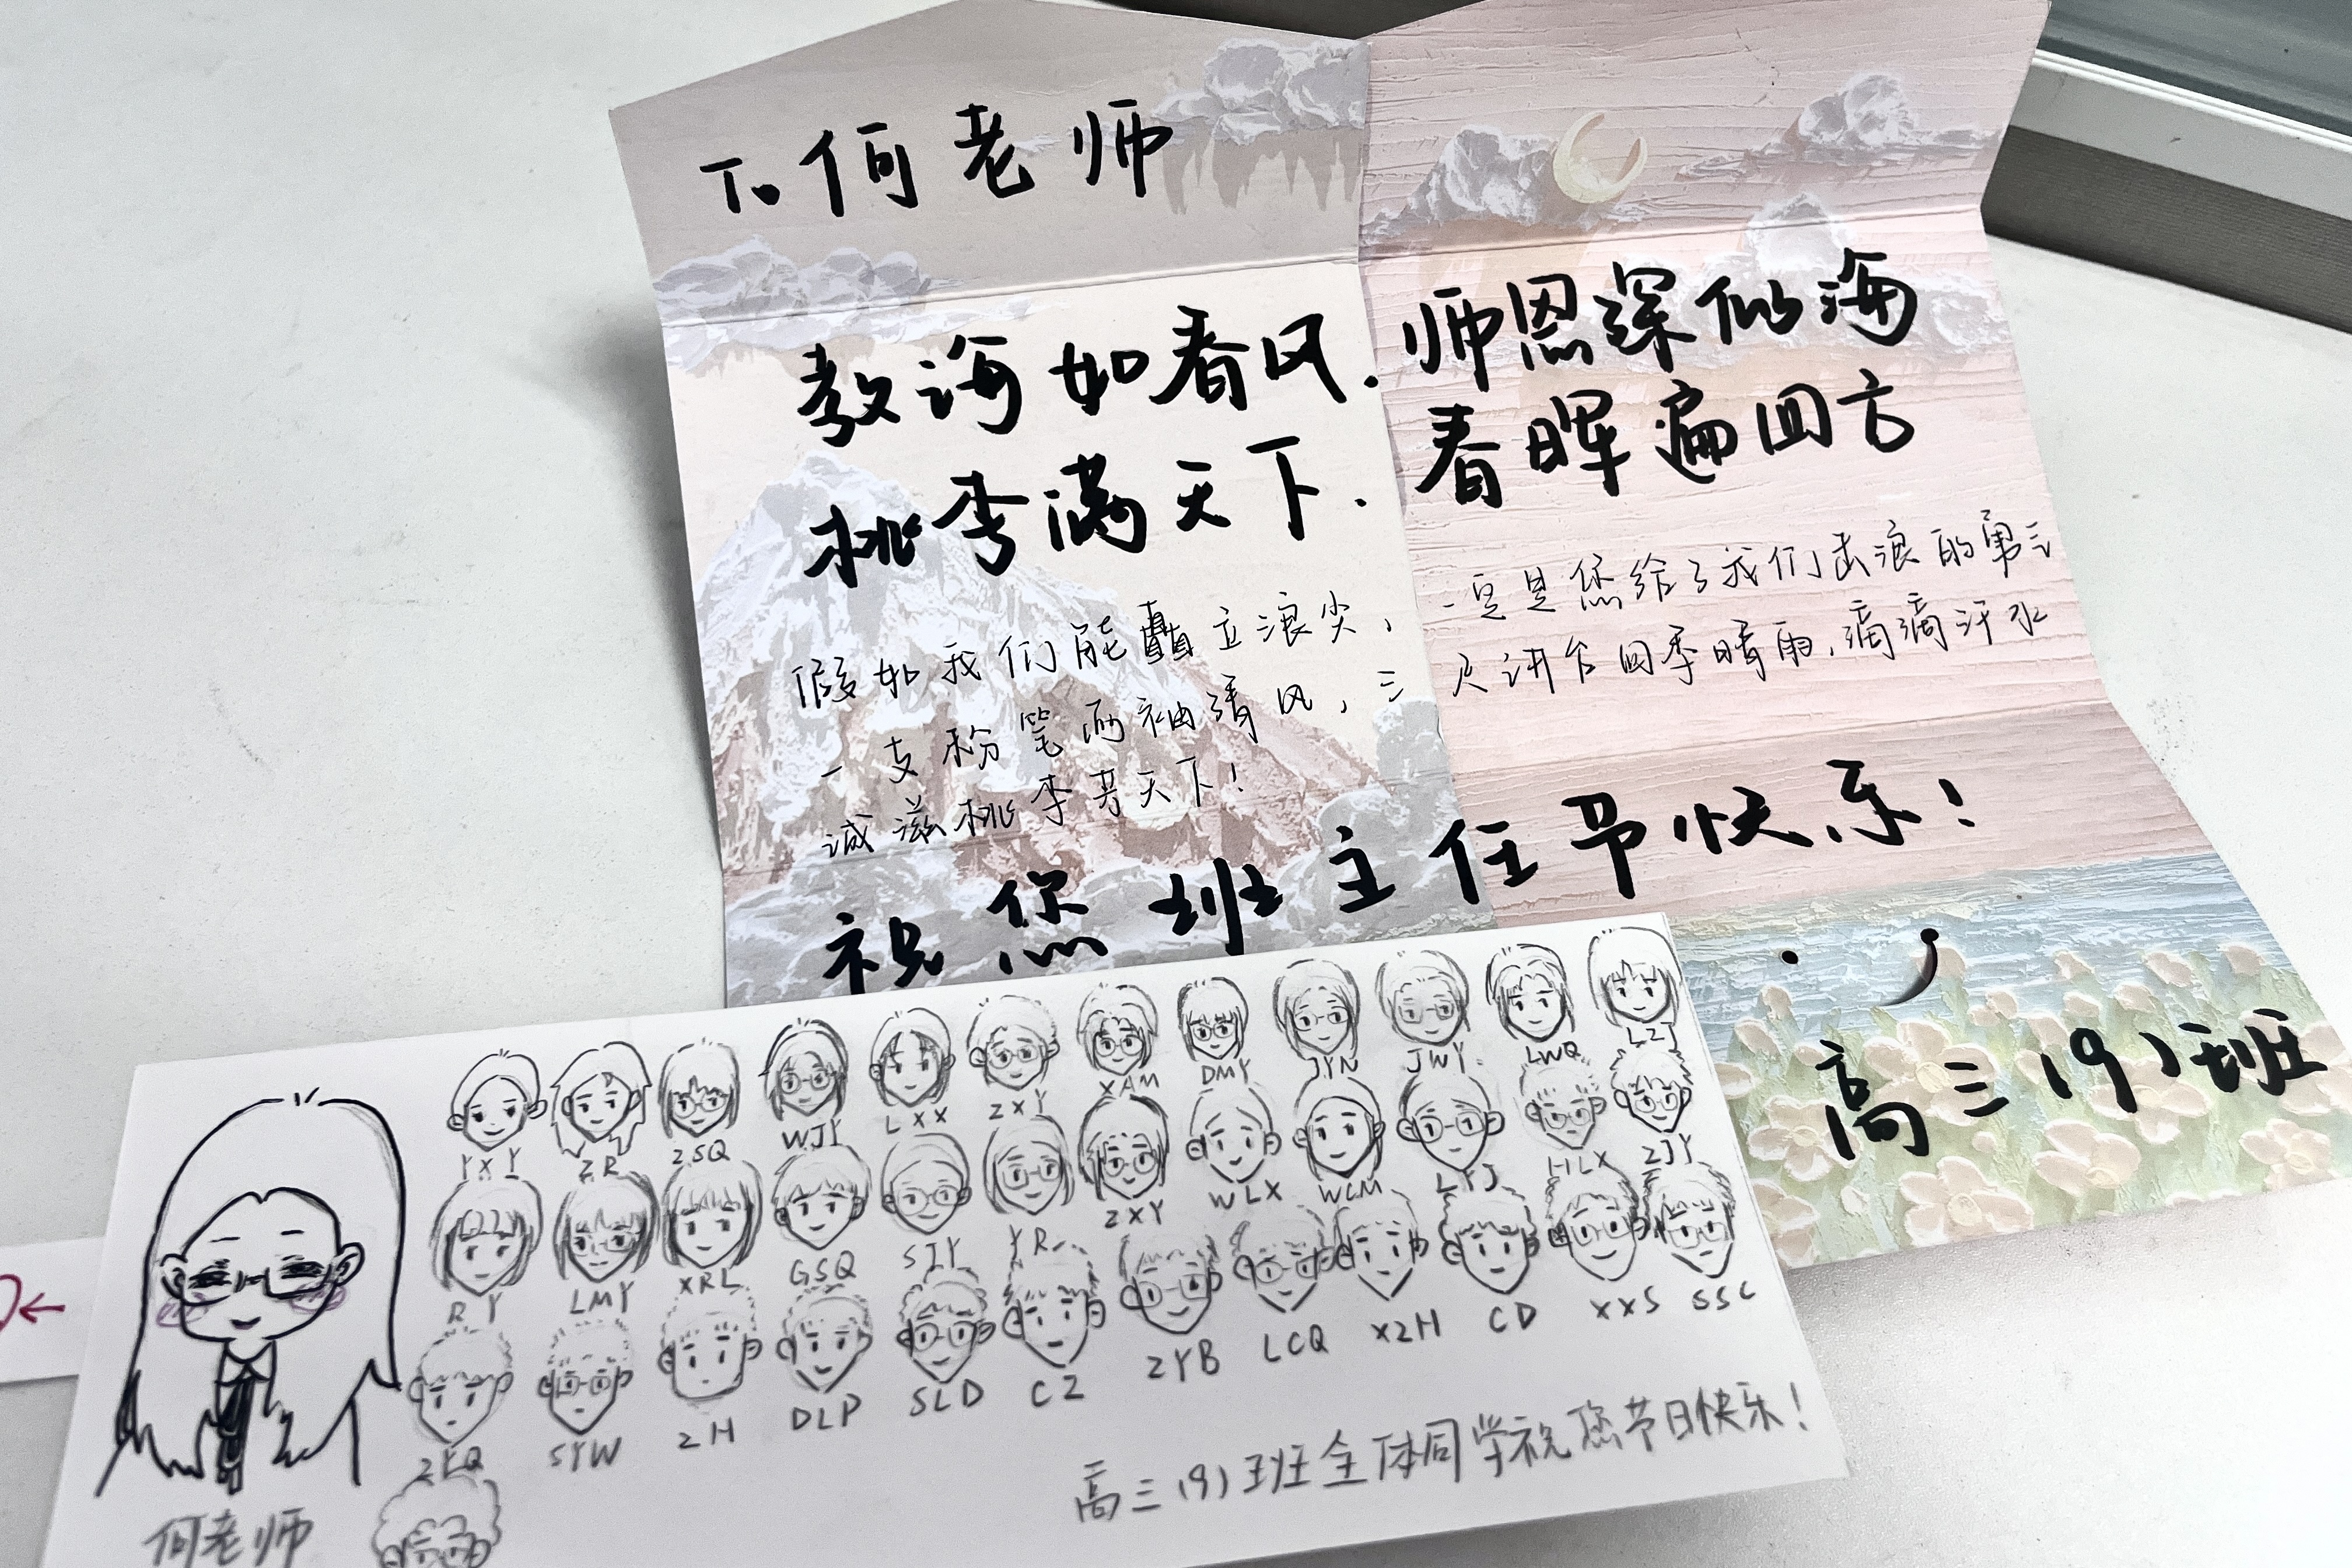 To 何老师
教诲如春风.师恩深似海
桃李满天下.春晖遍四方
假如我们能矗立浪尖,一定是您给了我们击浪的勇气
一支粉笔两袖清风,三尺讲台四季晴雨,滴滴汗水
诚滋桃李芳天下!
祝您班主任节快乐!
高三(9)班
YXY ZR ZSQ WJY LXX ZXY XAM DMY JYN JWY. LWQ LZJ
RY LMY XRL GSQ SJY YR ZXY WLX WLM LYJ HLX ZJY
ZYQ SYW ZH DLP SLD CZ ZYB LCQ XZH CD XXS SSC
高三(9)班全体同学祝您节日快乐!
何老师